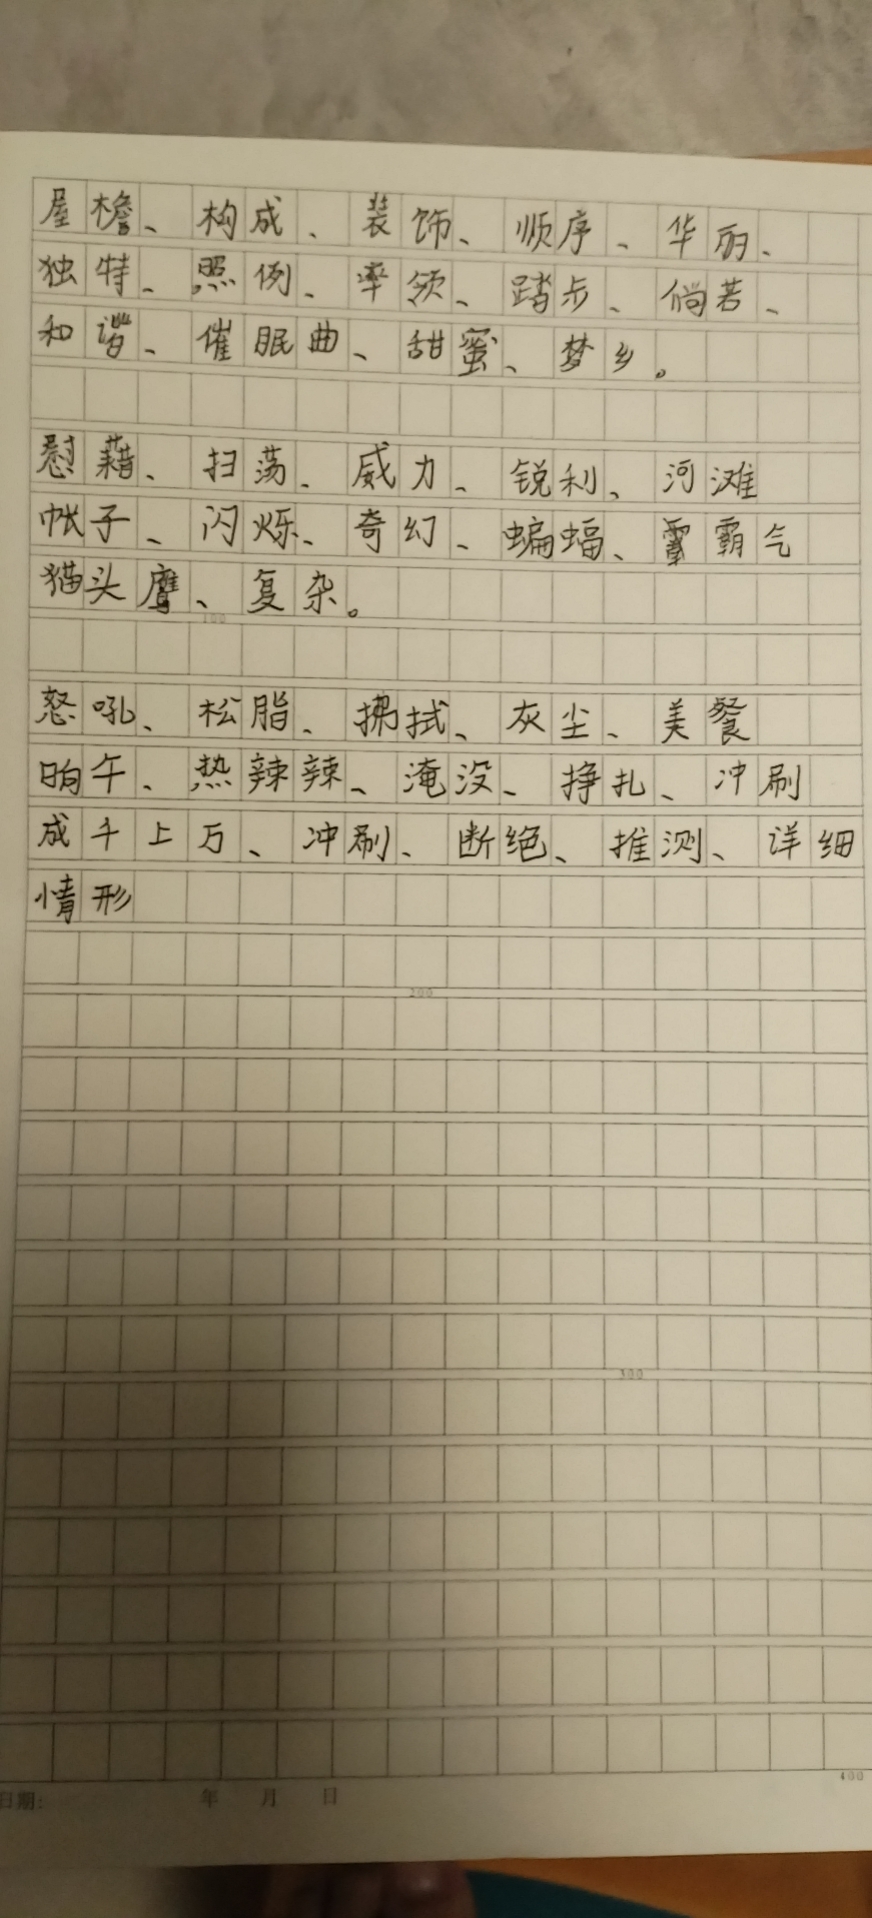 屋檐、构成、装饰、顺序、华丽、
独特、照例、率领、踏步、倘若、
和谐、催眠曲、甜蜜、梦乡。
慰藉、扫荡、威力、锐利、河滩
帐子、闪烁、奇幻、蝙蝠、霸气
猫头鹰、复杂。
100
怒吼、松脂、拂拭、灰尘、美餐
晌午、热辣辣、淹没、挣扎、冲刷
成千上万、冲刷、断绝、推测、详细
情形
200
300
400
日期: 年 月 日